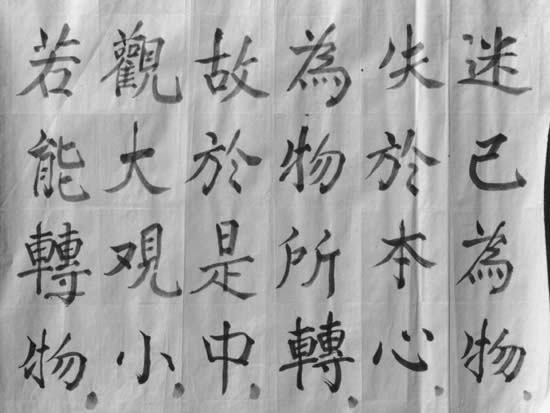 迷己為物
失於本心
為物所轉
故於是中
觀大观小
若能轉物